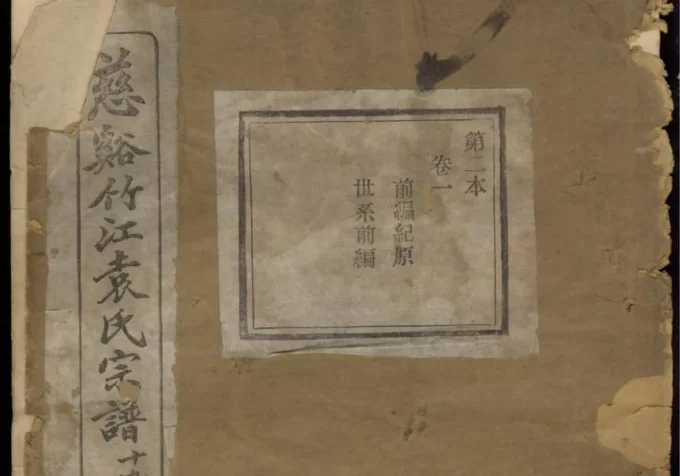 慈谿竹江袁氏宗譜十
第二本
卷一
前編紀原
世系前編